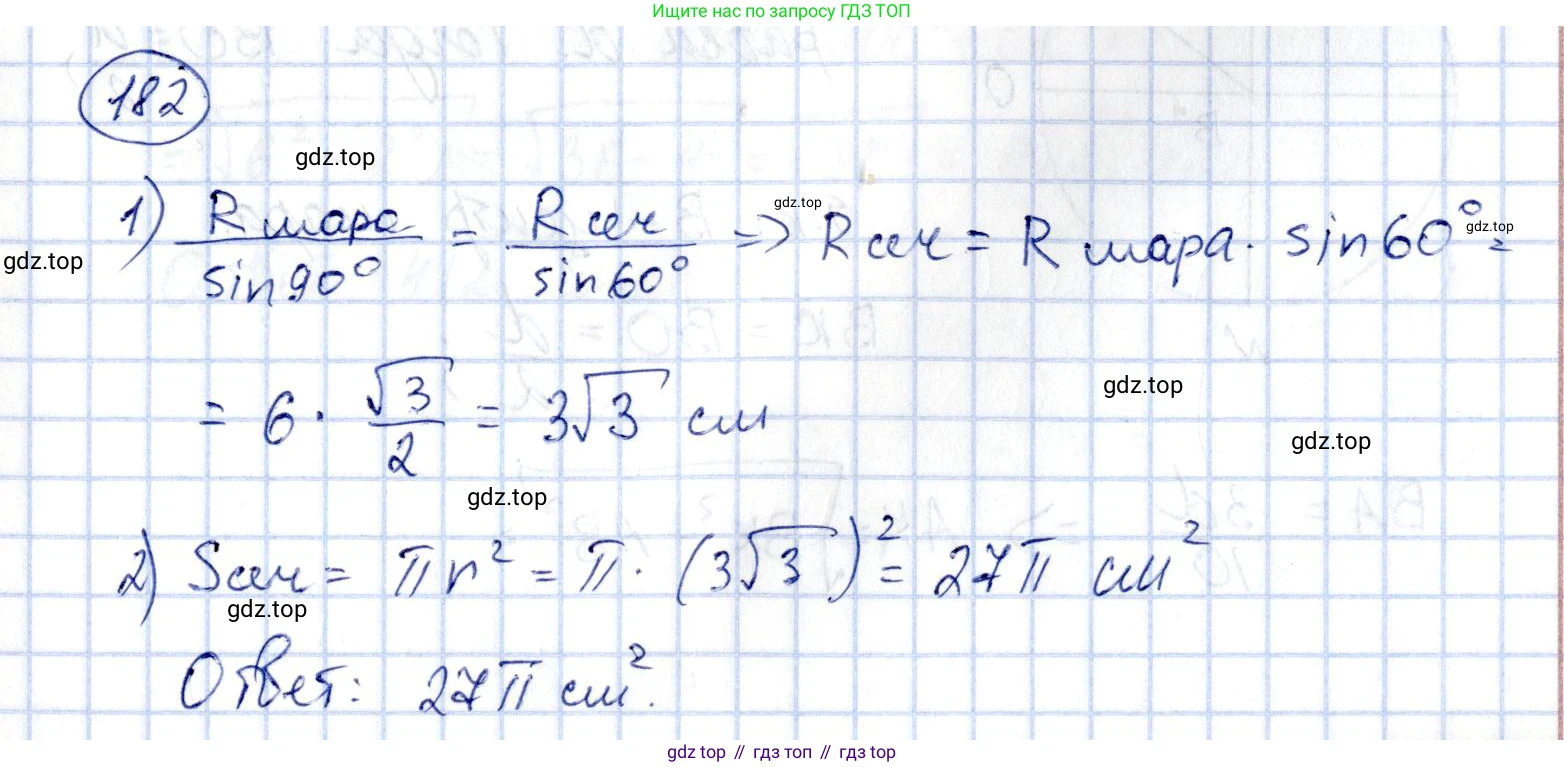 Ищите нас по запросу ГДЗ ТОП
182
gdz.top
1) R шара / sin90° = R сеч / sin60° => R сеч = R шара · sin60° =
gdz.top
gdz.top
gdz.top
= 6 · √3/2 = 3√3 см
gdz.top
gdz.top
gdz.top
2) Sсеч = πr² = π · (3√3)² = 27π см²
gdz.top
Ответ: 27π см².
gdz top // гдз топ // гдз top